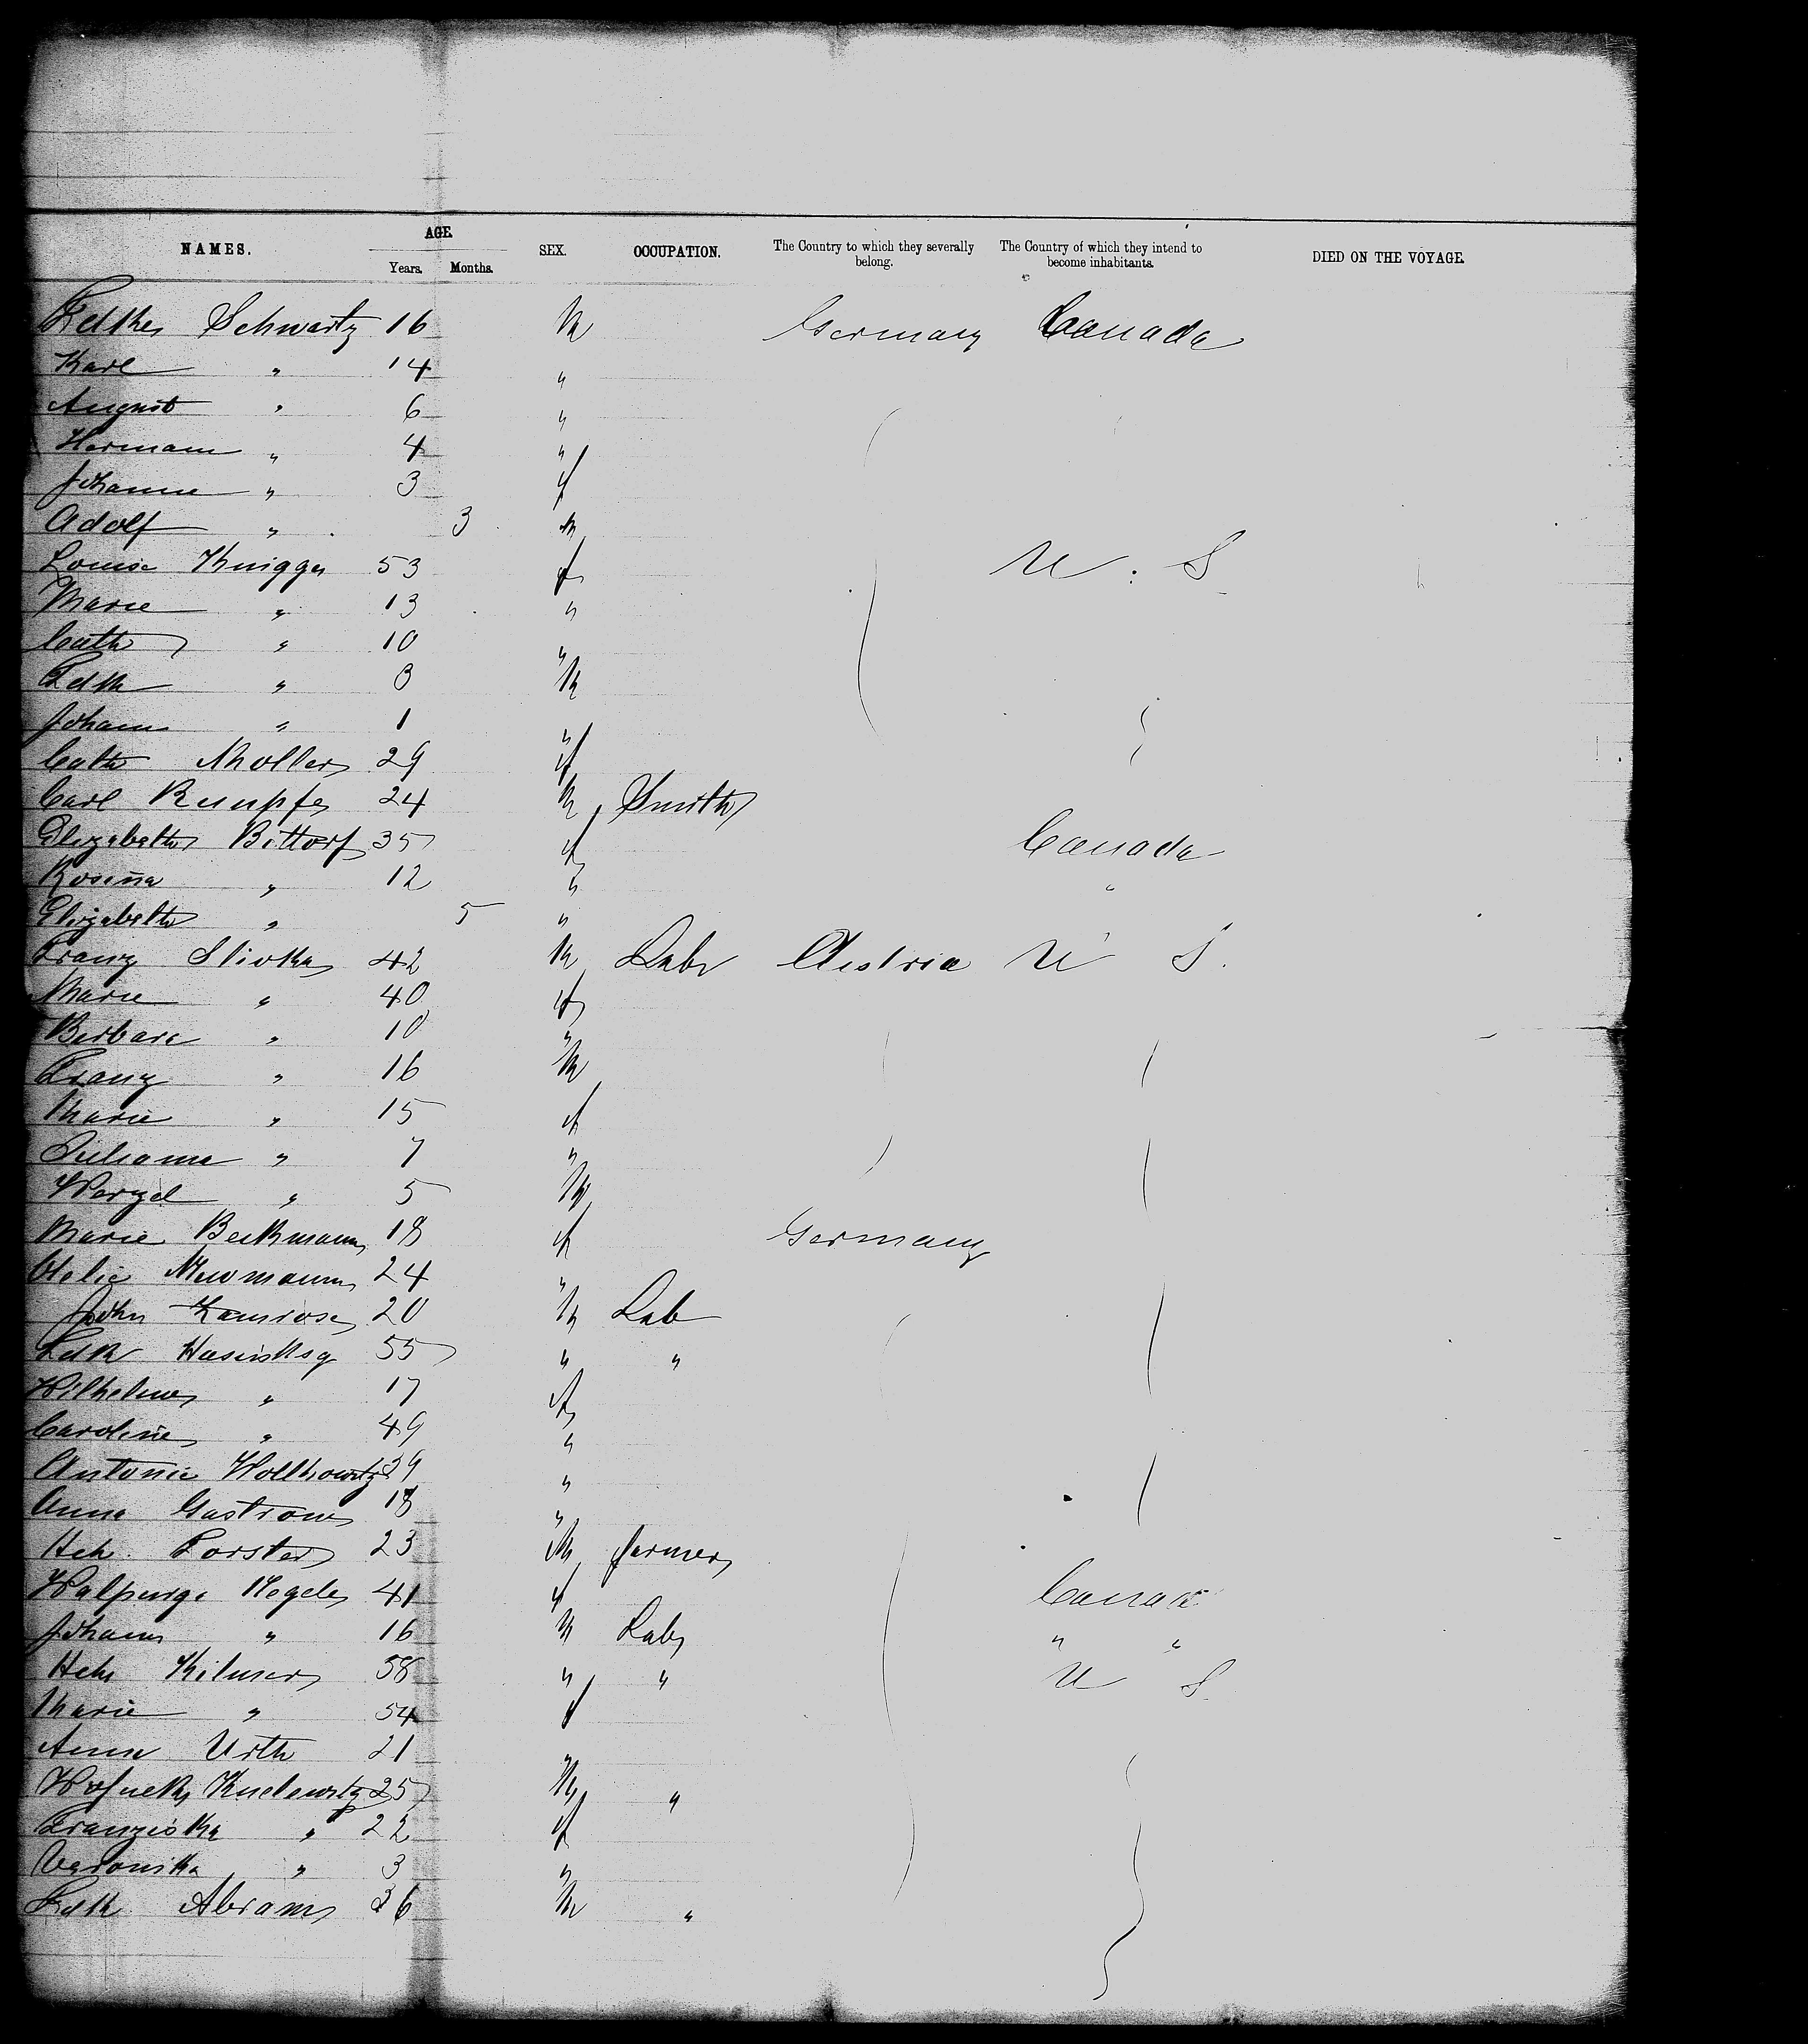 NAMES. AGE. Years. Months. SEX. OCCUPATION. The Country to which they severally belong. The Country of which they intend to become inhabitants. DIED ON THE VOYAGE.
Schwartz 16 M Germany Canada
Karl " 14 "
August " 6 "
Hermann " 4 "
Johanne " 3 f
Adolf " 3 M
Louise Knigge 53 f U. S.
Marie " 13 "
Cath " 10 "
Fdk " 3 M
Johann " 1 "
Cath Moller 29 f
Carl Rumpfe 24 M Smith
Elizabeth Bittorf 35 f Canada
Rosina " 12 " "
Elizabeth " 5 "
Franz Slivka 42 M Labr Austria U S.
Marie " 40 f
Barbara " 10 "
Franz " 16 M
Marie " 15 f
Julianna " 7 "
Wenzel " 5 M
Marie Beckmann 18 f Germany
Otelie Neumann 24 "
John 20 M Lab
Fdk 55 " "
Wilhelm " 17 f
Caroline " 49 "
Antonie "
Anna Gastrow 18 "
Hch. Forster 23 M farmer
Walpurga 41 f Canada
Johann " 16 M Lab " "
Hch 58 " " U S.
Marie " 54 f
Anna Urth 21 "
25 M "
Franziska " 22 f
Veronika " 3 "
Fdk Abram 36 M "